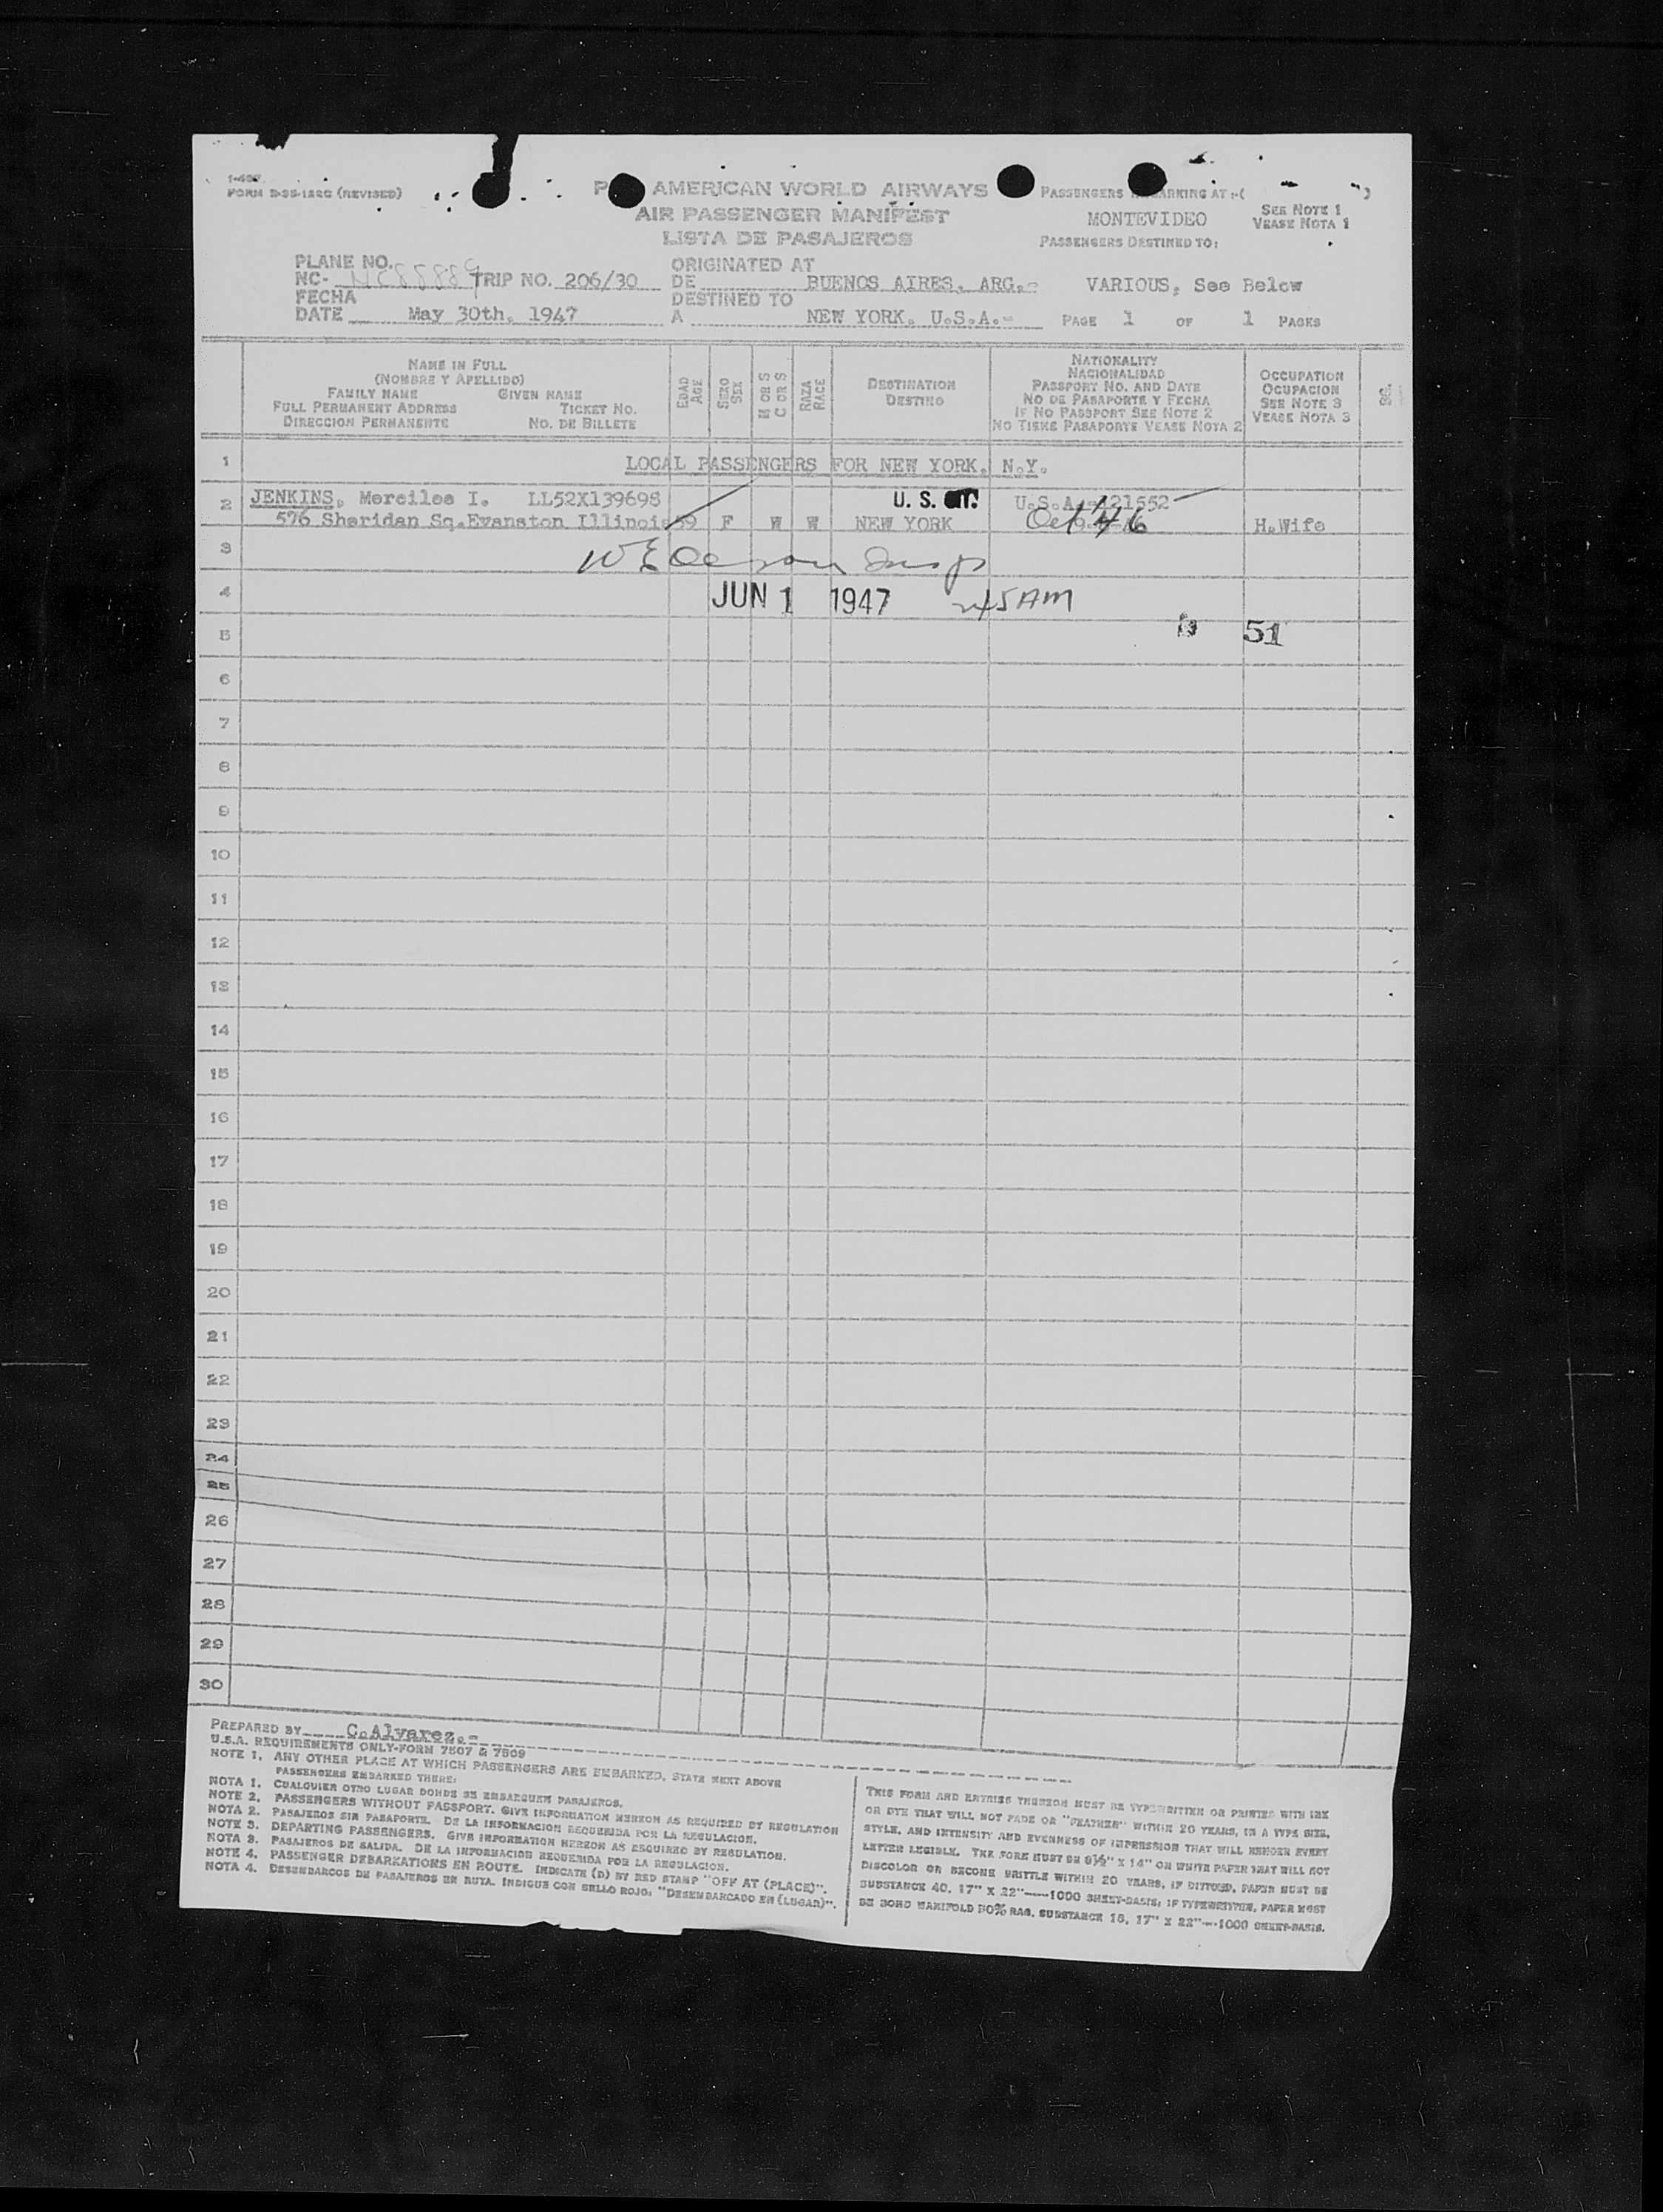 FORM D-SS-122C (REVISED)
AMERICAN WORLD AIRWAYS
AIR PASSENGER MANIFEST
LISTA DE PASAJEROS
PASSENGERS ARKING AT :- ( )
MONTEVIDEO
SEE NOTE 1
VEASE NOTA 1
PASSENGERS DESTINED TO:
VARIOUS, See Below
PAGE 1 OF 1 PAGES
PLANE NO.
NC- NC88889 TRIP NO. 206/30
FECHA
DATE May 30th, 1947
ORIGINATED AT
DE BUENOS AIRES, ARG.-
DESTINED TO
A NEW YORK. U.S.A.-
NAME IN FULL
(NOMBRE Y APELLIDO)
FAMILY NAME GIVEN NAME
FULL PERMANENT ADDRESS TICKET NO.
DIRECCION PERMANENTE NO. DE BILLETE
EDAD
AGE
SEXO
SEX
M OR S
C OR S
RAZA
RACE
DESTINATION
DESTINO
NATIONALITY
NACIONALIDAD
PASSPORT NO. AND DATE
NO DE PASAPORTE Y FECHA
IF NO PASSPORT SEE NOTE 2
NO TIENE PASAPORTE VEASE NOTA 2
OCCUPATION
OCUPACION
SEE NOTE 3
VEASE NOTA 3
1 LOCAL PASSENGERS FOR NEW YORK. N.Y.
2 JENKINS, Mercilee I. LL52X139698 U. S. CIT. U.S.A.-121552
576 Sheridan Sq.Evanston Illinois 59 F W W NEW YORK Oct 46 H.Wife
3 Insp
4 JUN 1 1947 245 AM
5 51
6
7
8
9
10
11
12
13
14
15
16
17
18
19
20
21
22
23
24
25
26
27
28
29
30
PREPARED BY C.Alvarez.-
U.S.A. REQUIREMENTS ONLY-FORM 7507 & 7509
NOTE 1. ANY OTHER PLACE AT WHICH PASSENGERS ARE EMBARKED, STATE NEXT ABOVE
PASSENGERS EMBARKED THERE:
NOTA 1. CUALQUIER OTRO LUGAR DONDE SE EMBARQUEN PASAJEROS.
NOTE 2. PASSENGERS WITHOUT PASSPORT. GIVE INFORMATION HEREON AS REQUIRED BY REGULATION
NOTA 2. PASAJEROS SIN PASAPORTE. DE LA INFORMACION REQUERIDA POR LA REGULACION.
NOTE 3. DEPARTING PASSENGERS. GIVE INFORMATION HEREON AS REQUIRED BY REGULATION.
NOTA 3. PASAJEROS DE SALIDA. DE LA INFORMACION REQUERIDA POR LA REGULACION.
NOTE 4. PASSENGER DEBARKATIONS EN ROUTE. INDICATE (D) BY RED STAMP "OFF AT (PLACE)".
NOTA 4. DESEMBARCOS DE PASAJEROS EN RUTA. INDIQUE CON SELLO ROJO: "DESEMBARCADO EN (LUGAR)".
THIS FORM AND ENTRIES THEREON MUST BE TYPEWRITTEN OR PRINTED WITH INK
OR DYE THAT WILL NOT FADE OR "FEATHER" WITHIN 20 YEARS, IN A TYPE SIZE,
STYLE, AND INTENSITY AND EVENNESS OF IMPRESSION THAT WILL RENDER EVERY
LETTER LEGIBLE. THE FORM MUST BE 8½" X 14" ON WHITE PAPER THAT WILL NOT
DISCOLOR OR BECOME BRITTLE WITHIN 20 YEARS, IF DITTOED, PAPER MUST BE
SUBSTANCE 40, 17" X 22"----1000 SHEET-BASIS; IF TYPEWRITTEN, PAPER MUST
BE BOND MANIFOLD 50% RAG, SUBSTANCE 16, 17" X 22"---1000 SHEET-BASIS.